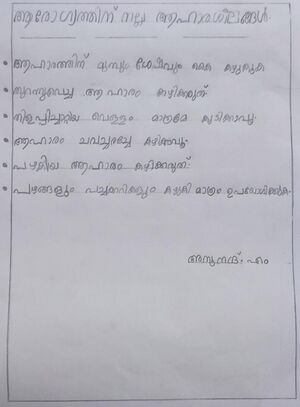 ആരോഗ്യത്തിന് നല്ല ആഹാരശീലങ്ങൾ.
• ആഹാരത്തിന് മുമ്പും ശേഷവും കൈ കഴുകുക
• തുറന്നുവെച്ച ആഹാരം കഴിക്കരുത്.
• തിളപ്പിച്ചാറിയ വെള്ളം മാത്രമേ കുടിക്കാവൂ.
• ആഹാരം ചവച്ചരച്ചേ കഴിക്കാവൂ.
• പഴകിയ ആഹാരം കഴിക്കരുത്.
• പഴങ്ങളും പച്ചക്കറികളും കഴുകി മാത്രം ഉപയോഗിക്കുക.
എം